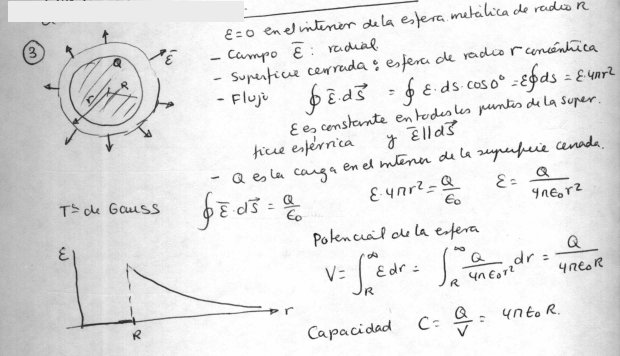 ε=0 en el interior de la esfera metálica de radio R
③
- Campo ε̄: radial
- Superficie cerrada: esfera de radio r concéntrica
- Flujo ∮ ε̄·ds⃗ = ∮ ε·ds·cos0° = ε∮ds = ε·4πr²
ε es constante en todos los puntos de la super.
ficie esférica y ε̄∥ds⃗
- Q es la carga en el interior de la superficie cerrada.
Q
ε̄
R
r
Tª de Gauss ∮ ε̄·ds⃗ = Q/ε₀ ε·4πr² = Q/ε₀ ε = Q/4πε₀r²
Potencial de la esfera
V = ∫_R^∞ ε dr = ∫_R^∞ Q/4πε₀r² dr = Q/4πε₀R
ε
r
R
Capacidad C = Q/V = 4πε₀R.